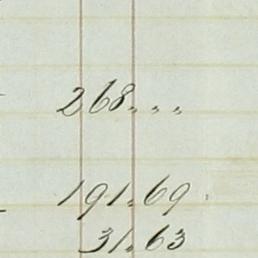 268. „ „
191.69
31.63